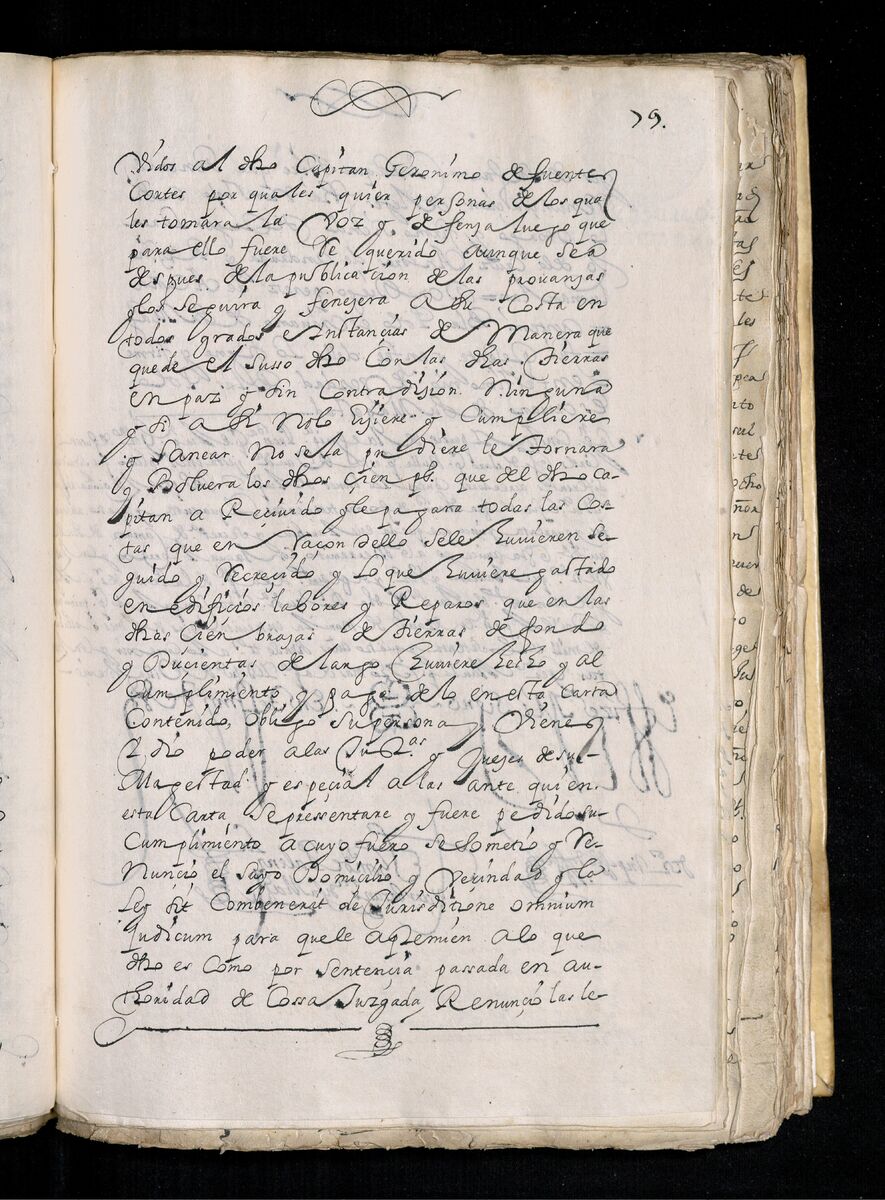 79.
didos al dho Capitan Geronimo de fuente
Cortes por quales quier personas de los qua
les tomara la Voz y defensa luego que
para ello fuere Re querido aunque sea
despues de la publicaçion de las provanças
y los seguira y feneçera a su Costa en
todos grados e instançias de Manera que
quede el susso dho Con las dhas tierras
en paz y sin Contradision Ninguna
y si a si Nolo hiçiere y Cumpliere
y sanear No se la pudiere le tornara
y Bolvera los dhos çien ps. que del dho ca-
pitan a Reçivido y le pagara todas las Cos-
tas que en Raçon dello sele huvieren se-
guido y Recreçido y lo que huviere gastado
en edifiçios labores y Reparos que en las
dhas Cien brajas de tierras de fondo
y Duçientas de largo huviere hecho y al
Cumplimiento y paga de lo en esta carta
Contenido, obligo su persona y Vienes
y dio poder a las Justas. y Jueçes de su
Magestad y espeçial a las ante quien
esta Carta se pressentare y fuere pedido su
Cumplimiento a cuyo fuero se sometio y Re-
nunçio el suyo Domiçilio y Veçindad y la
Ley sit Combenerit de Jurisditione omnium
Judicum para quele apremien a lo que
dho es Como por sentençia passada en au-
thoridad de Cossa Juzgada Renunçio las le-